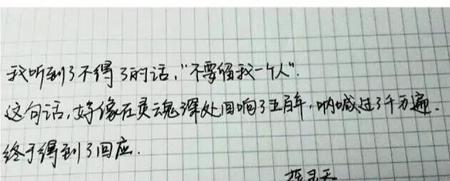 我听到了不得了的话，"不要留我一个人".
这句话，好像在灵魂深处回响了五百年，呐喊过了千万遍.
终于得到了回应.